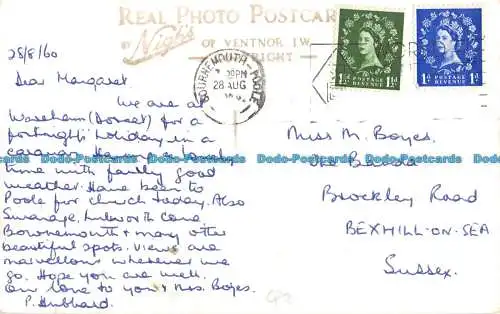 REAL PHOTO POSTCAR
BY Nigh's OF VENTNOR I.W.
RIGHT
28/8/60
Dear Margaret
We are at
Wareham (Dorset) for a
fortnight's holiday in a
caravan. Having a lovely
time with fairly good
weather. Have been to
Poole for church today. Also
Swanage, Lulworth Cove,
Bournemouth & many other
beautiful spots. Views are
marvellous wherever we
go. Hope you are well.
Our love to you & Mrs. Boyes.
P. Hubbard.
BOURNEMOUTH-POOLE
PM
28 AUG
1½d POSTAGE REVENUE 1½d
1d POSTAGE REVENUE 1d
Miss M. Boyes.
Brockley Road
BEXHILL-ON-SEA
Sussex.
Dodo-Postcards Dodo-Postcards Dodo-Postcards Dodo-Postcards Dodo-Postcards